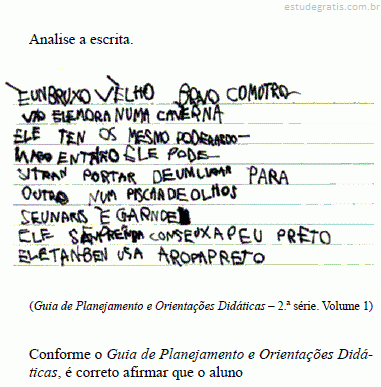 estudegratis.com.br
Analise a escrita.
EUNBRUXO VELHO BOVO COMOTRO
VÃO ELEMORA NUMA CAVERNA
ELE TEN OS MESMO PODERARDO
ENTÃRO ELE PODE
SITRAN PORTAR DEUMLUGAR PARA
OUTRO NUM PISCHADEOLHOS
SEUNARIS E GARNDE
ELE SENPRENDA CONSEUXAPEU PRETO
ELETANBEN USA AROPAPRETO
(Guia de Planejamento e Orientações Didáticas – 2.ª série. Volume 1)
Conforme o Guia de Planejamento e Orientações Didá-
ticas, é correto afirmar que o aluno